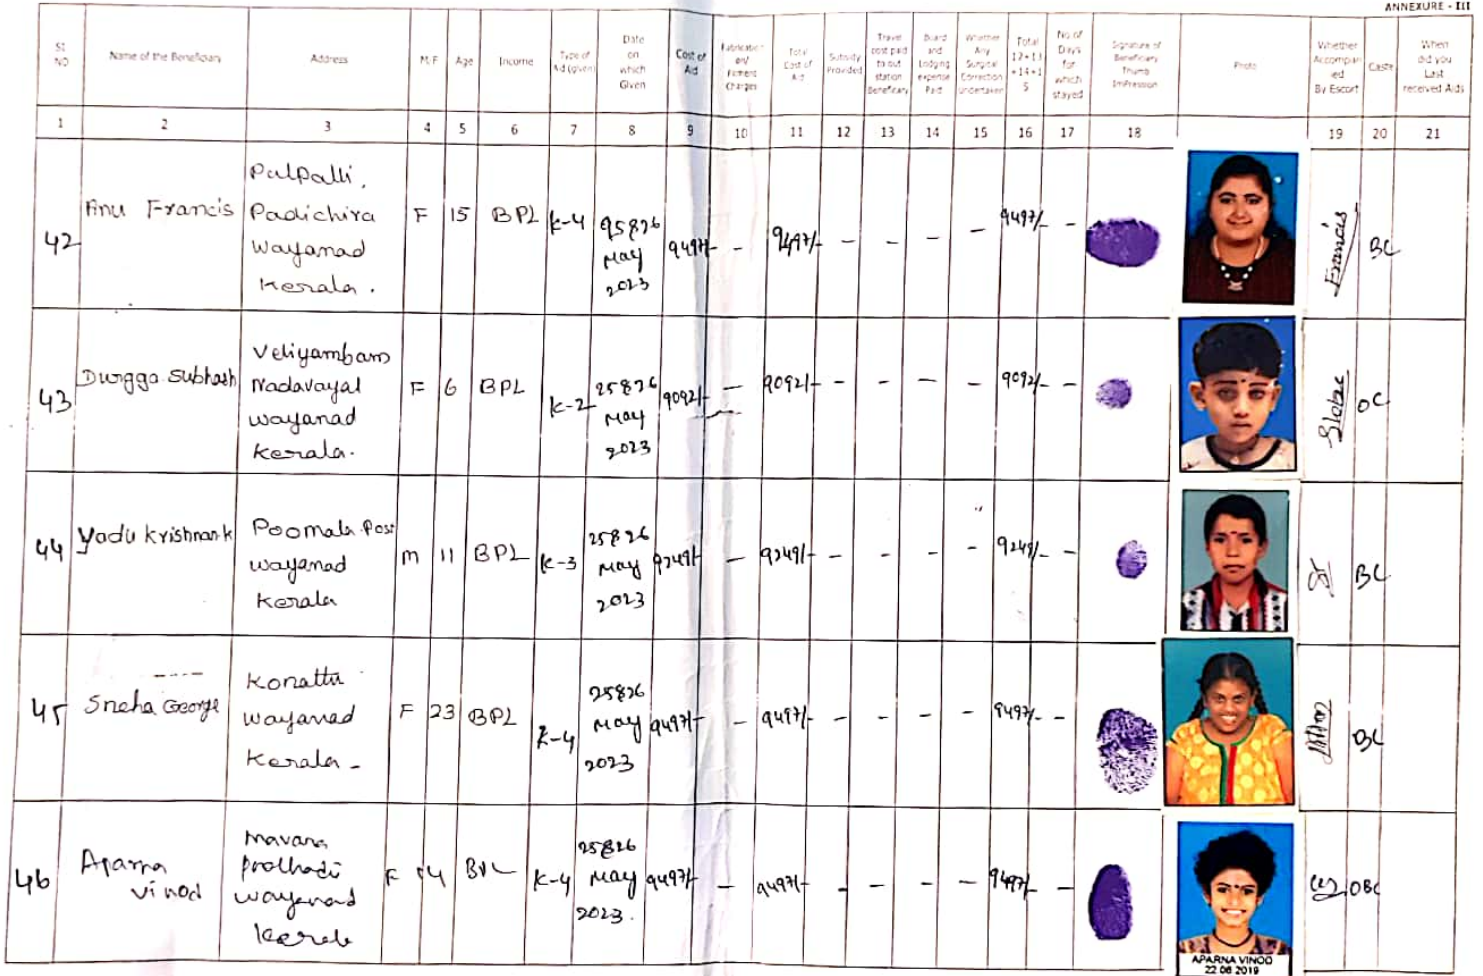 ANNEXURE - III
Sl NO
Name of the Beneficiary
Address
M/F
Age
Income
Type of Aid (given)
Date on which Given
Cost of Aid
Fabrication/ Fitment Charges
Total Cost of Aid
Subsidy Provided
Travel cost paid to out station Beneficiary
Board and Lodging expense Paid
Whether Any Surgical Correction Undertaken
Total 12+13+14+15
No of Days for which stayed
Signature of Beneficiary Thumb Impression
Photo
Whether Accompanied By Escort
Caste
When did you Last received Aids
1 2 3 4 5 6 7 8 9 10 11 12 13 14 15 16 17 18 19 20 21
42
Anu Francis
Pulpalli,
Padichira
Wayanad
Kerala.
F 15 BPL K-4
25&26
May
2023
9497/- - 9497/- - - - - 9497/- -
Francis
BC
43
Durgga Subhash
Veliyambam
Nadavayal
Wayanad
Kerala.
F 6 BPL K-2
25&26
May
2023
9092/- - 9092/- - - - - 9092/- -
OC
44
Yadu Krishnan k
Poomala Post
Wayanad
Kerala
M 11 BPL K-3
25&26
May
2023
9249/- - 9249/- - - - - 9249/- -
BC
45
Sneha George
Konattu
Wayanad
Kerala -
F 23 BPL K-4
25&26
May
2023
9497/- - 9497/- - - - - 9497/- -
BC
46
Aparna
Vinod
wayanad
Kerala
F 14 BPL K-4
25&26
May
2023.
9497/- - 9497/- - - - - 9497/- -
OBC
APARNA VINOD
22 06 2019